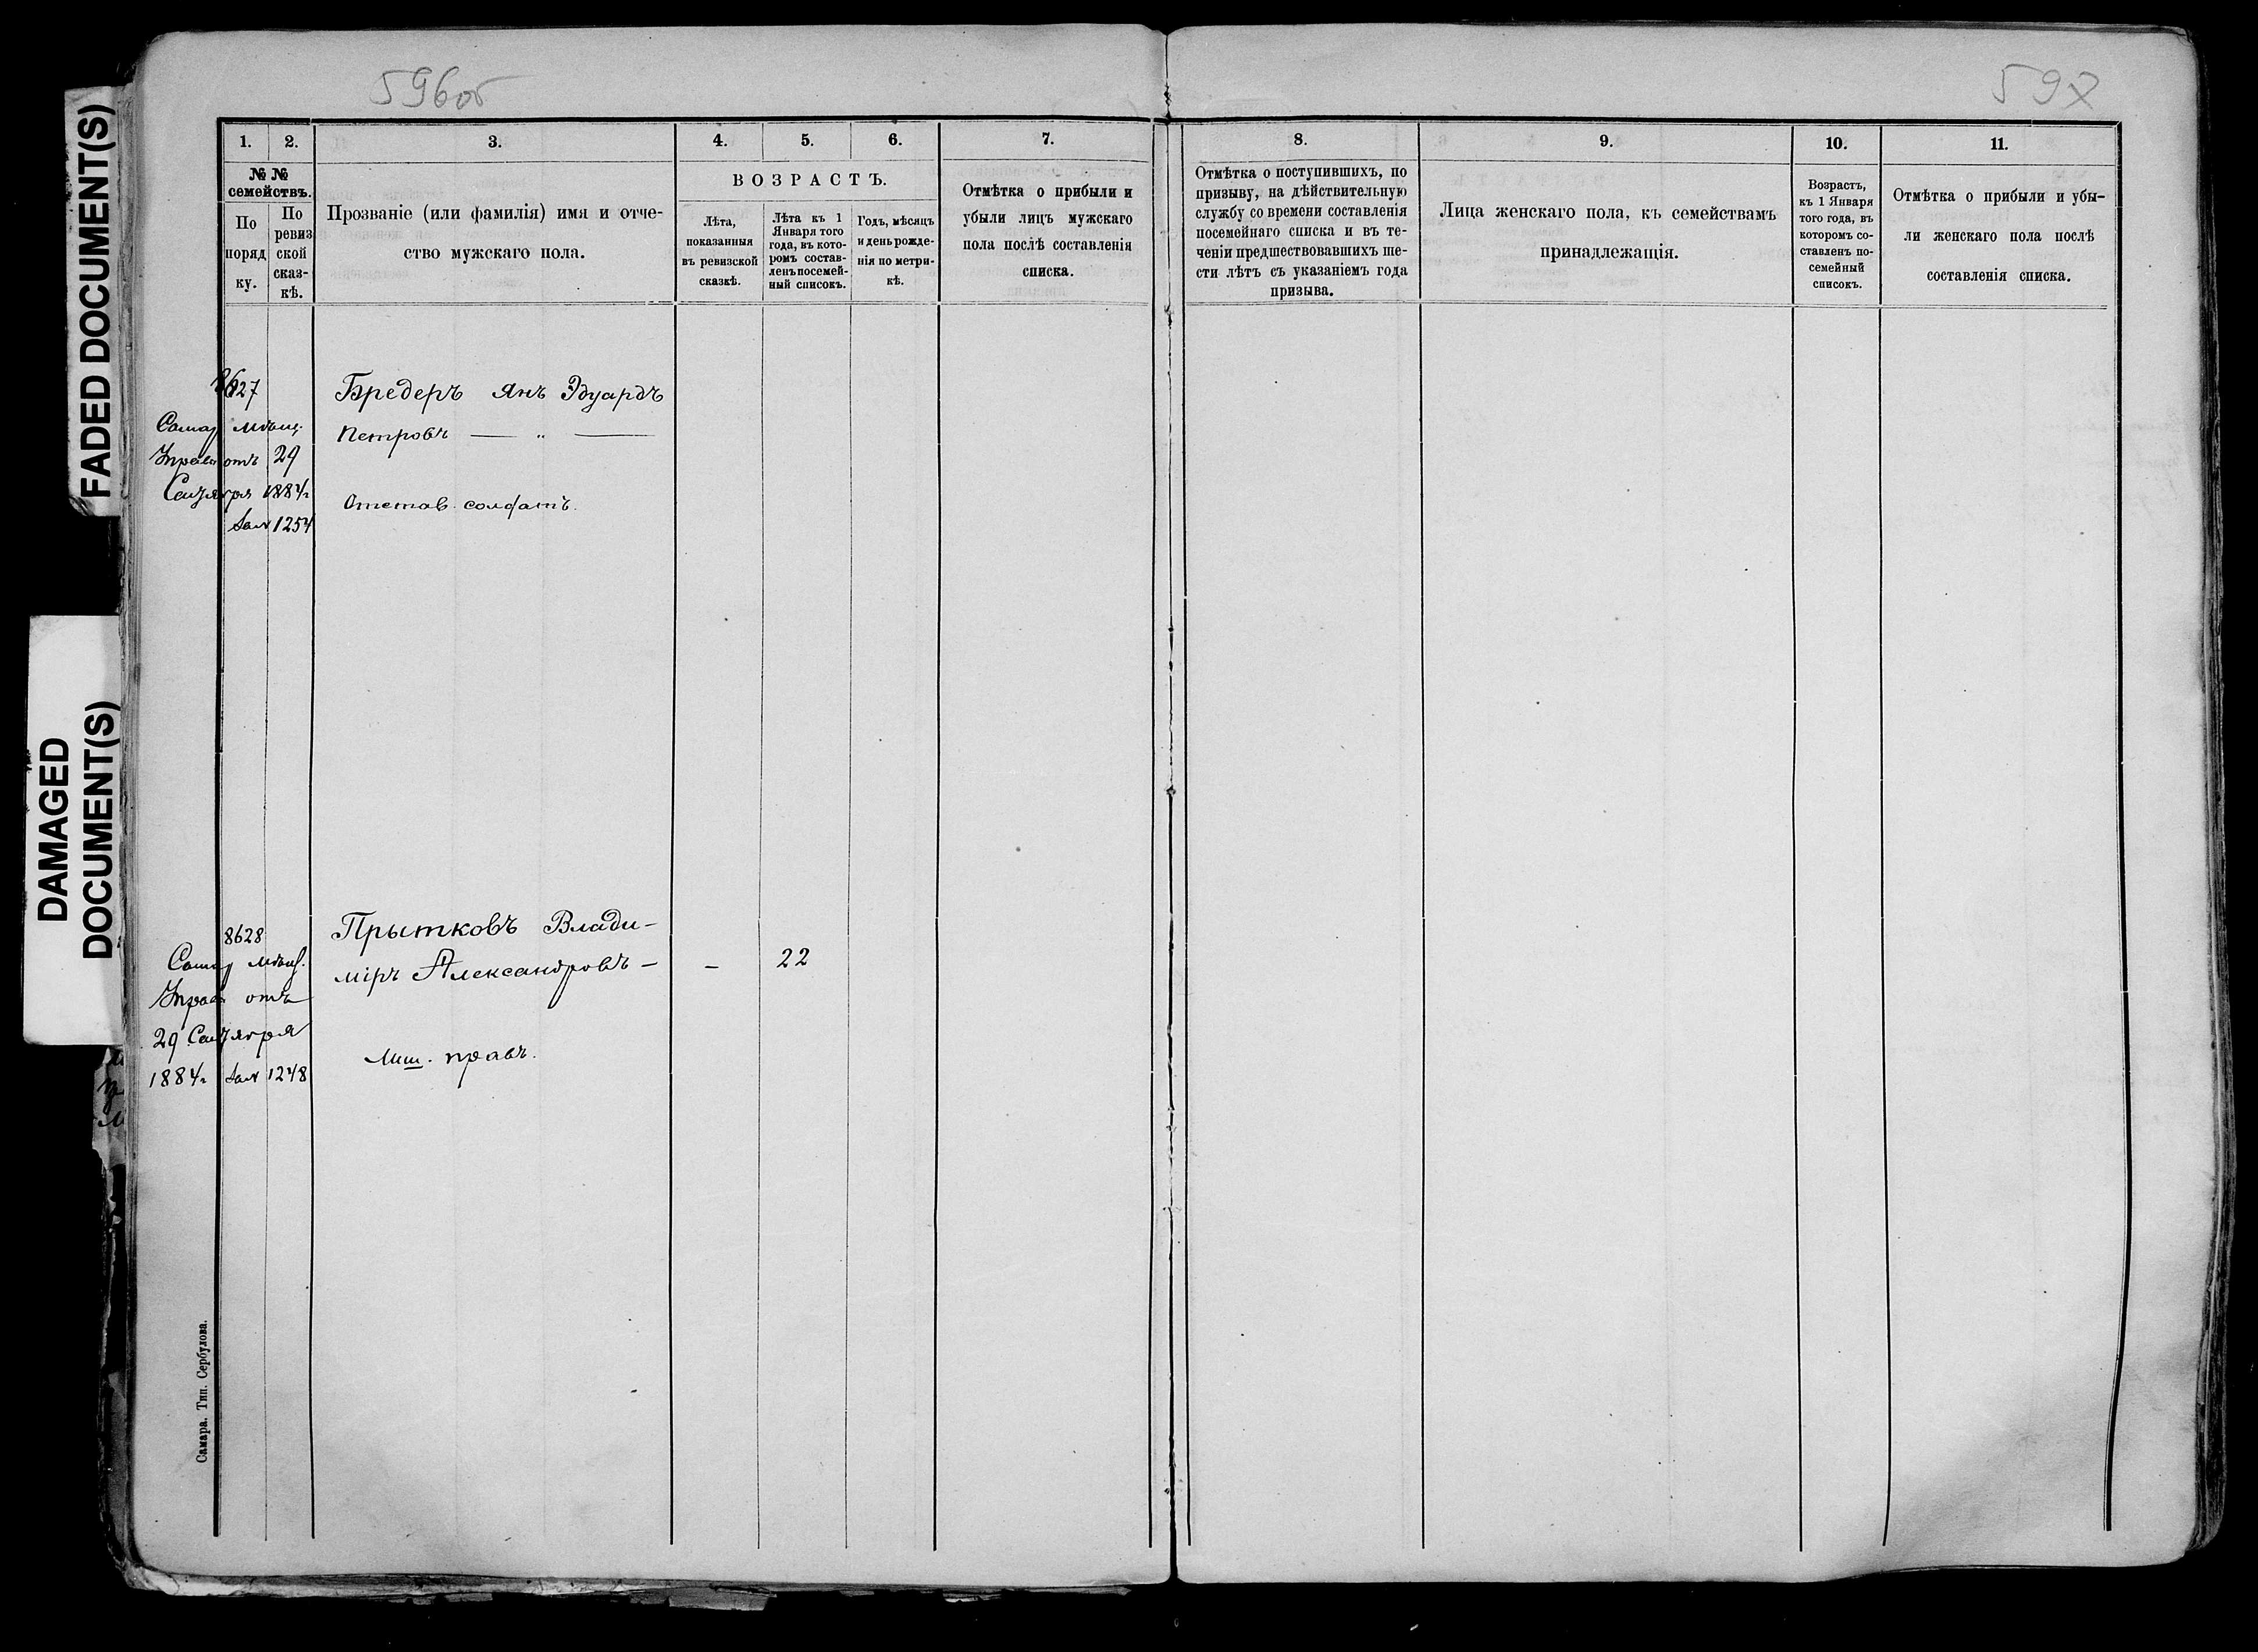 596об
597
FADED DOCUMENT(S)
DAMAGED
DOCUMENT(S)
1. 2. 3. 4. 5. 6. 7.
№ № семействъ.
По порядку.
По ревизской сказкѣ.
Прозваніе (или фамилія) имя и отче-
ство мужскаго пола.
ВОЗРАСТЪ.
Лѣта,
показанныя
въ ревизской
сказкѣ.
Лѣта къ 1
Января того
года, въ кото-
ромъ состав-
ленъ посемей-
ный списокъ.
Годъ, мѣсяцъ
и день рожде-
нія по метри-
кѣ.
Отмѣтка о прибыли и
убыли лицъ мужскаго
пола послѣ составленія
списка.
8. 9. 10. 11.
Отмѣтка о поступившихъ, по
призыву, на дѣйствительную
службу со времени составленія
посемейнаго списка и въ те-
ченіи предшествовавшихъ ше-
сти лѣтъ съ указаніемъ года
призыва.
Лица женскаго пола, къ семействамъ
принадлежащія.
Возрастъ,
къ 1 Января
того года, въ
которомъ со-
ставленъ по-
семейный
списокъ.
Отмѣтка о прибыли и убы-
ли женскаго пола послѣ
составленія списка.
8627
Бредеръ Янъ Эдуардъ
Самар мѣщ.
Петровъ — „ —
Управ отъ 29
1884г
Отстав. солдатъ.
1254
8628
Прытковъ Влади-
Самар мѣщ.
міръ Александровъ — — 22
Управ отъ
29
Лиш. правъ.
1884г 1248
Самара. Тип. Сербулова.